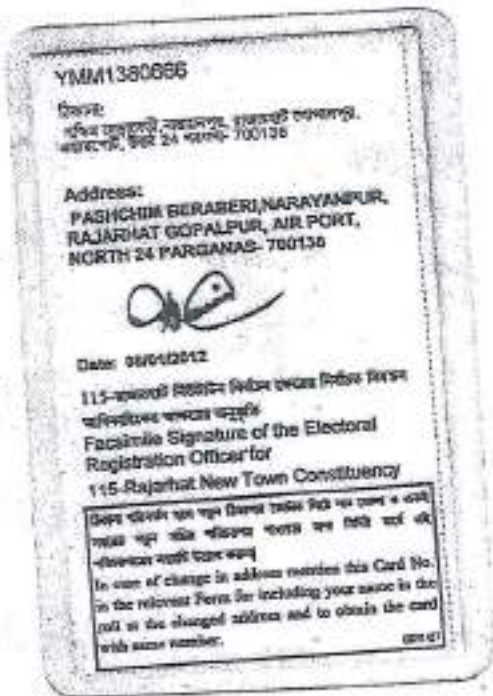 YMM1380666
ঠিকানা:
পশ্চিম বেরাবেরী, নারায়নপুর, রাজারহাট গোপালপুর,
এয়ারপোর্ট, উত্তর 24 পরগনা- 700136
Address:
PASHCHIM BERABERI,NARAYANPUR,
RAJARHAT GOPALPUR, AIR PORT,
NORTH 24 PARGANAS- 700136
Date: 06/01/2012
115-রাজারহাট নিউটাউন নির্বাচন ক্ষেত্রের নির্বাচক নিবন্ধন
আধিকারিকের স্বাক্ষরের অনুকৃতি
Facsimile Signature of the Electoral
Registration Officer for
115-Rajarhat New Town Constituency
ঠিকানা পরিবর্তন হলে নতুন ঠিকানায় ভোটার লিস্টে নাম তোলা ও একই
নম্বরের নতুন সচিত্র পরিচয়পত্র পাওয়ার জন্য নির্দিষ্ট ফর্মে এই
পরিচয়পত্রের নম্বরটি উল্লেখ করুন
In case of change in address mention this Card No.
in the relevant Form for including your name in the
roll at the changed address and to obtain the card
with same number.